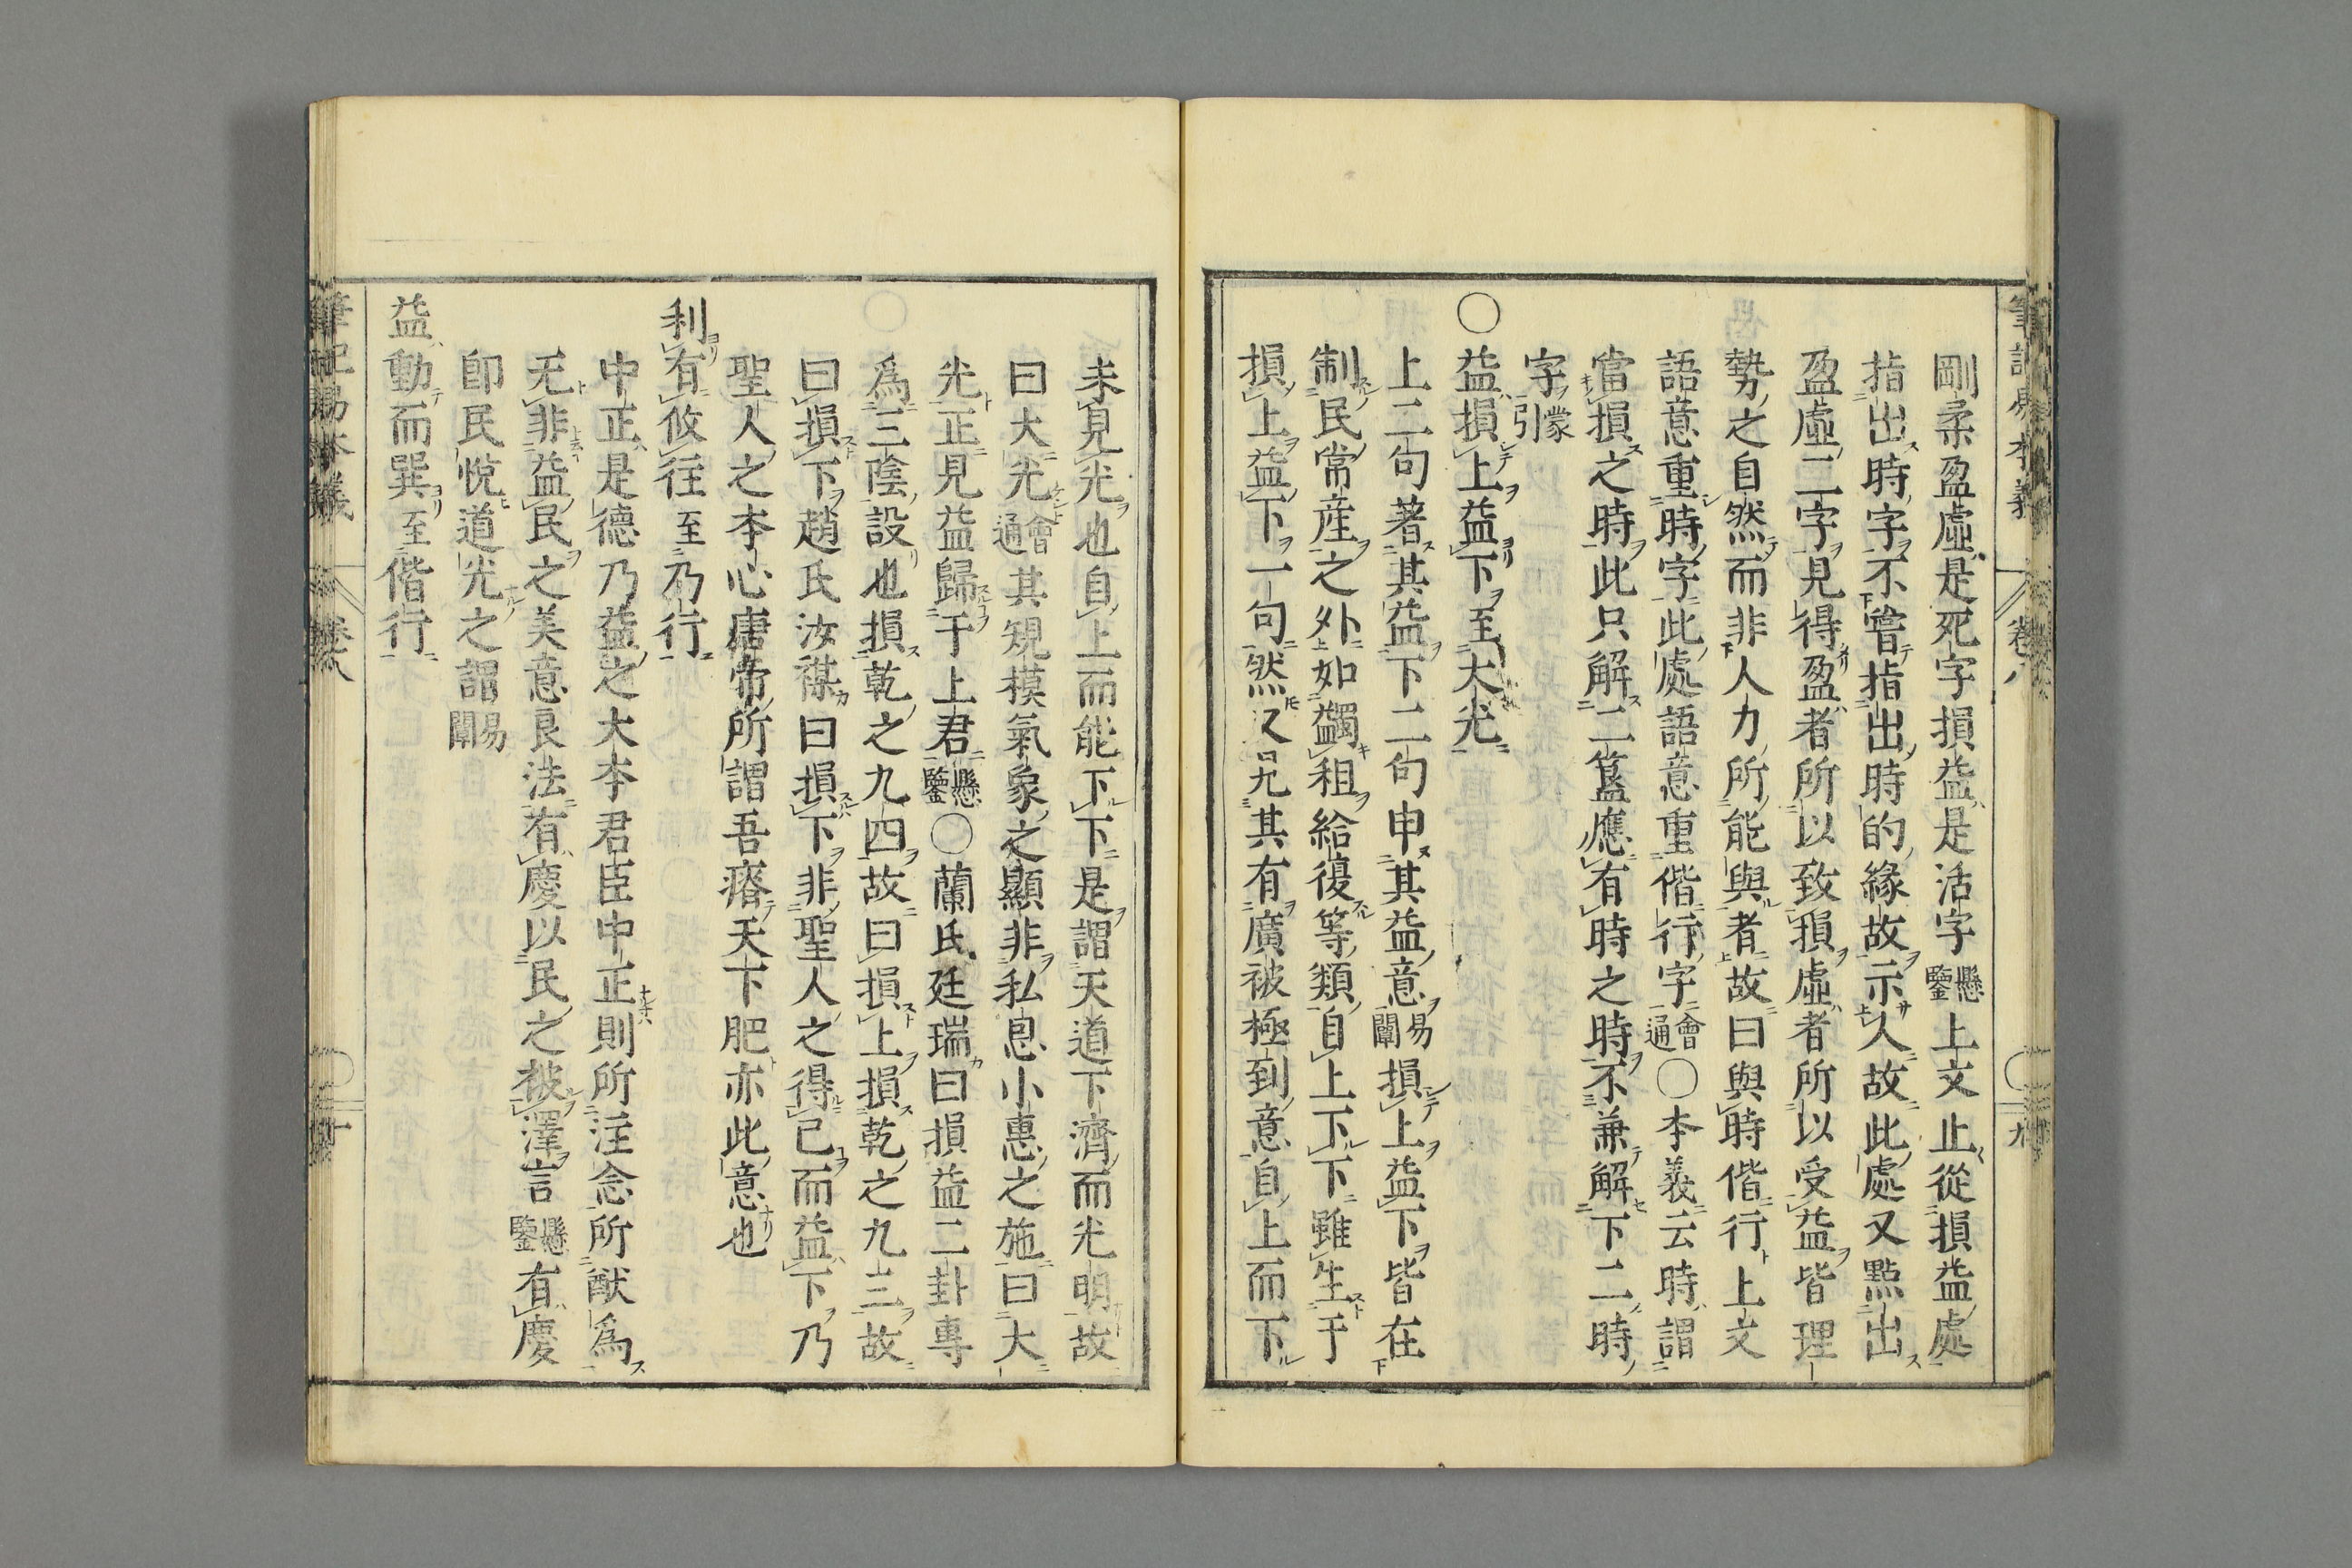 筆記易本義 卷八 九
剛柔盈虛是死字損益是活字懸鑒上文止從損益處
指出時字不曾指出時的緣故示人故此處又點出
盈虛二字見得盈者所以致損虛者所以受益皆理
勢之自然而非人力所能與者故曰與時偕行上文
語意重時字此處語意重偕行字會通〇本義云時謂
當損之時此只解二簋應有時之時不兼解下二時
字蒙引
〇益損上益下至大光
上二句著其益下二句申其益意易闡損上益下皆在
制民常産之外如蠲租給復等類自上下下雖生于
損上益下一句然又見其有廣被極到意自上而下
未見光也自上而能下下是謂天道下濟而光明故
曰大光會通其規模氣象之顯非私恩小惠之施曰大
光正見益歸于上君懸鑒〇蘭氏廷瑞曰損益二卦專
爲三陰設也損乾之九四故曰損上損乾之九三故
曰損下趙氏汝楳曰損下非聖人之得已而益下乃
聖人之本心唐帝所謂吾瘠天下肥亦此意也
利有攸往至乃行
中正是德乃益之大本君臣中正則所注念所猷爲
无非益民之美意良法有慶以民之被澤言懸鑒有慶
卽民悅道光之謂易闡
益動而巽至偕行
筆記易本義 卷八 十